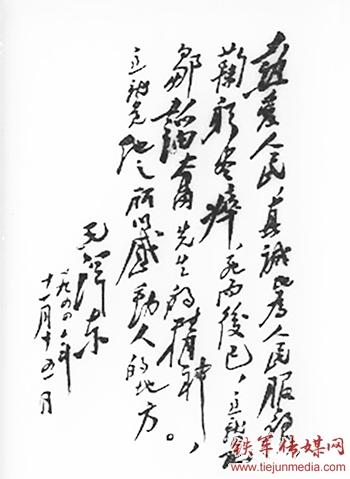 热爱人民，真誠地為人民服務，
鞠躬尽瘁，死而後已，这就是
鄒韜奮先生的精神，
这就是他之所以感動人的地方。
毛澤东
一九四四年
十一月十五日
铁军传媒网
www.tiejunmedia.com